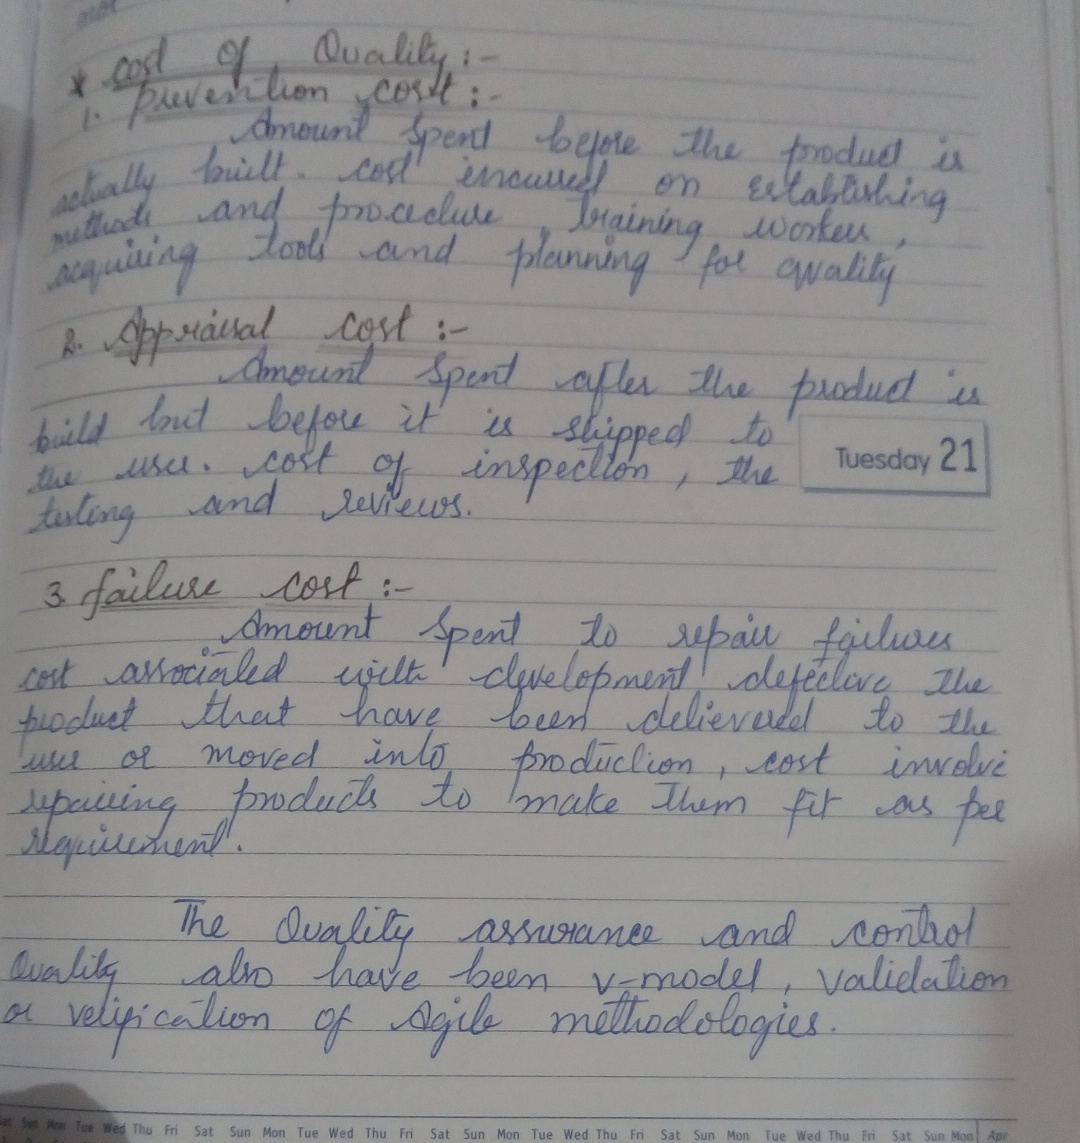 * Cost of Quality :-
1. Prevention cost :-
Amount Spent before the product is
actually built. cost incurred on Establishing
methods and procedure, training worker,
acquiring tools and planning for quality
2. Appraisal cost :-
Amount Spent after the product is
build but before it is shipped to
the user. cost of inspection, the
testing and reviews.
Tuesday 21
3. failure cost :-
Amount Spent to repair failures
cost associated with development defective the
product that have been delievered to the
user or moved into production, cost involve
repairing products to make them fit as per
requirement.
The Quality assurance and control
Quality also have been v-model, validation
or verification of Agile methodologies.
Sat Sun Mon Tue Wed Thu Fri Sat Sun Mon Tue Wed Thu Fri Sat Sun Mon Tue Wed Thu Fri Sat Sun Mon Tue Wed Thu Fri Sat Sun Mon Apr